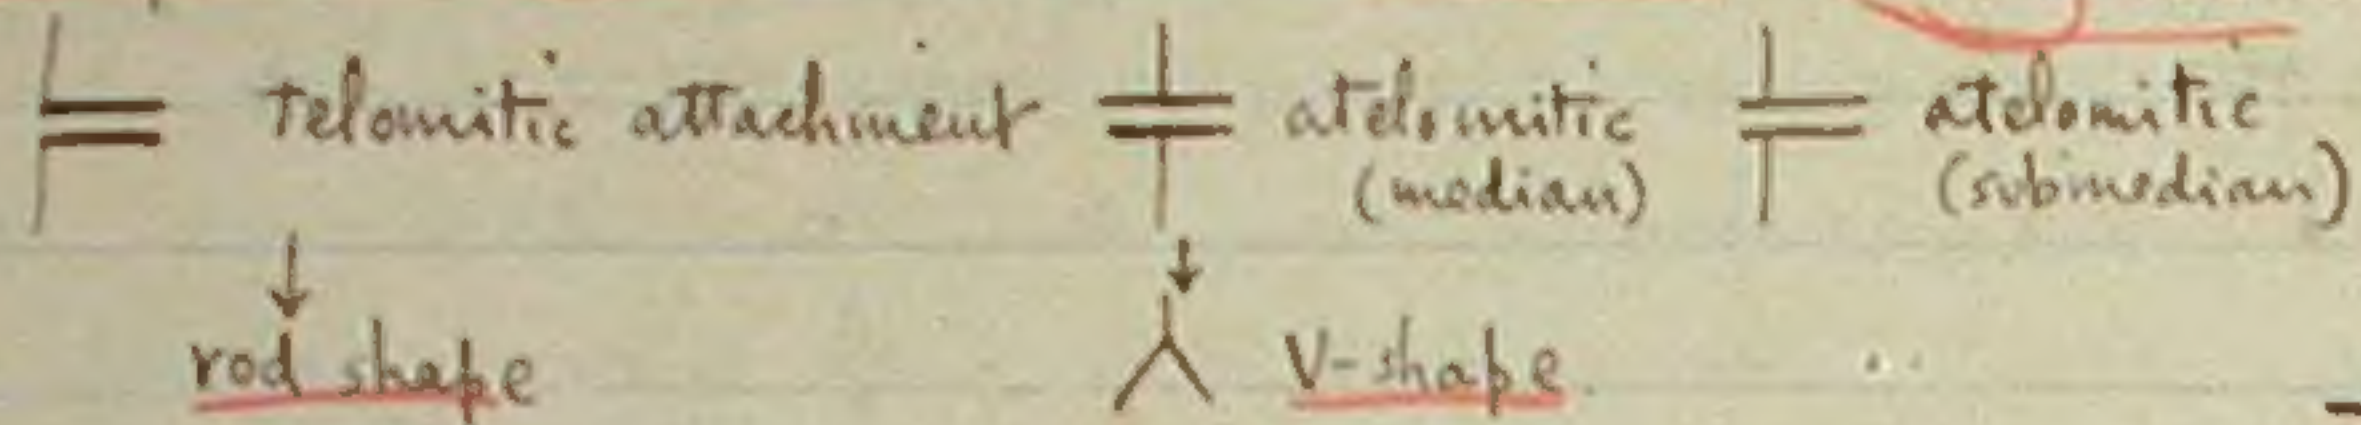 telomitic attachment atelomitic atelomitic
(median) (submedian)
rod shape V-shape